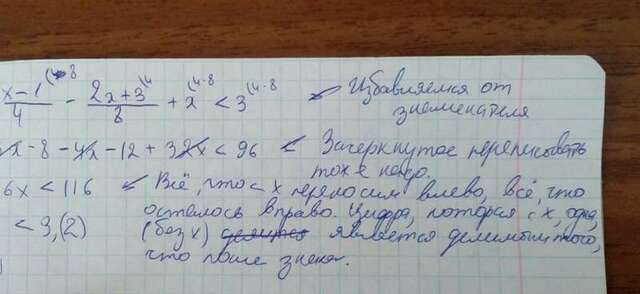 x-1(4·8 / 4 - 2x+3(4 / 8 + x(4·8 < 3(4·8 Избавляемся от знаменателя
x - 8 - 4x - 12 + 32x < 96 Зачеркнутое переписовать тоже надо.
6x < 116 Всё, что с x переносим влево, всё, что
осталось вправо. Цифра, которая с x, одна,
< 3,(2) (без x) является делимым того,
что после знака.